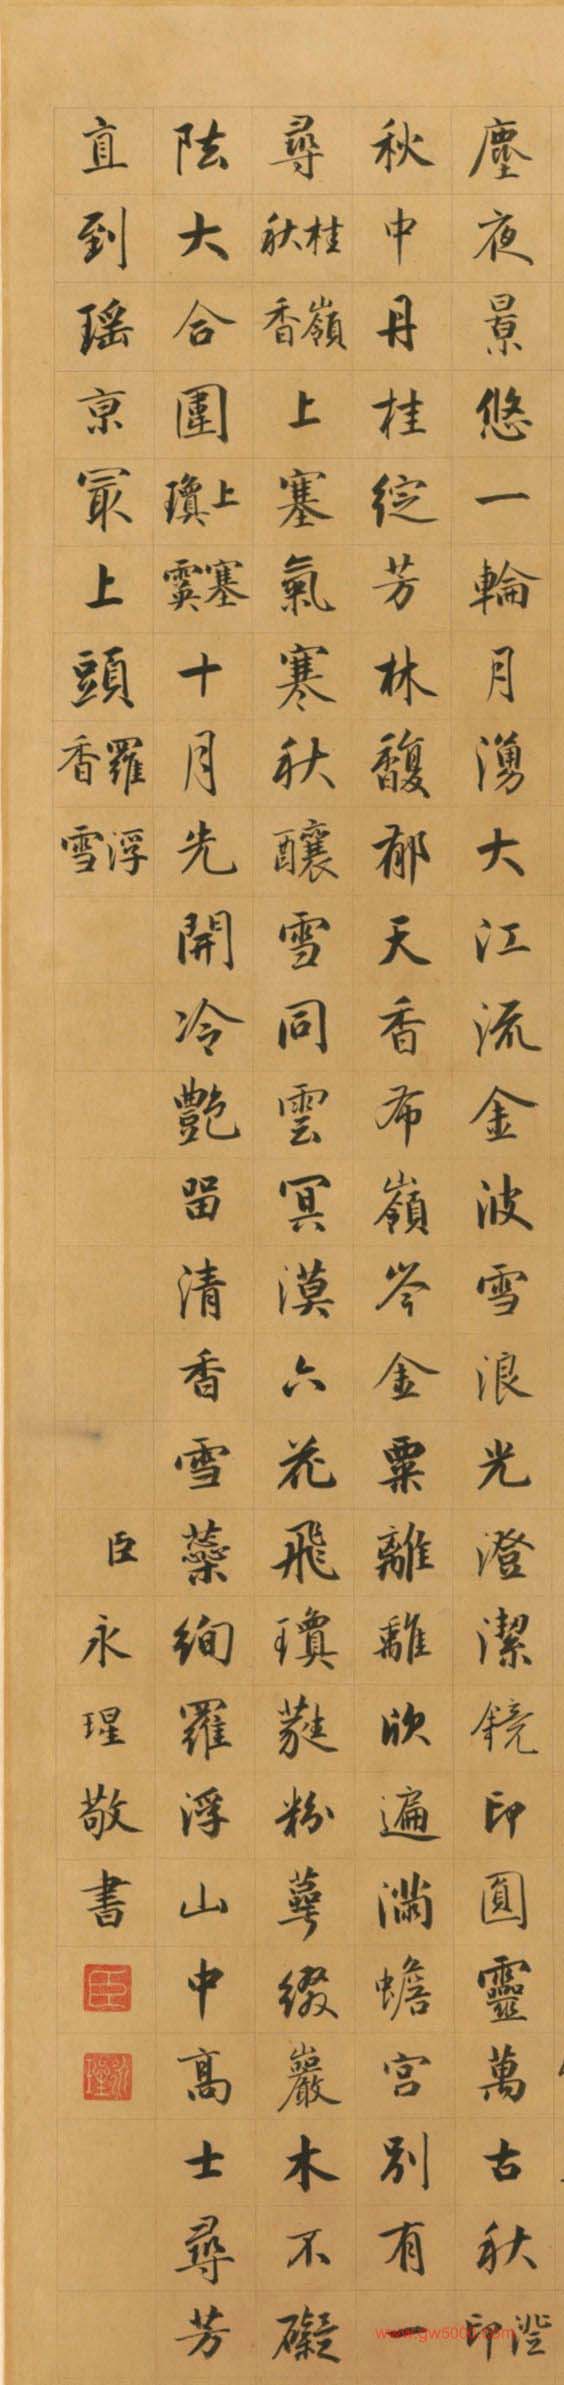 塵夜景悠一輪月湧大江流金波雪浪光澄潔鏡印圓靈萬古秋澄印
秋中丹桂綻芳林馥郁天香布嶺岑金粟離離欣遍滿蟾宮別有一
尋桂嶺秋香上塞氣寒秋釀雪同雲冥漠六花飛瓊蕤粉萼綴巖木不礙
阹大合圍上塞瓊霙十月先開冷艷留清香雪蘂絢羅浮山中高士尋芳
直到瑤亰冣上頭羅浮香雪
臣永瑆敬書
臣
永瑆
www.gw5000.com